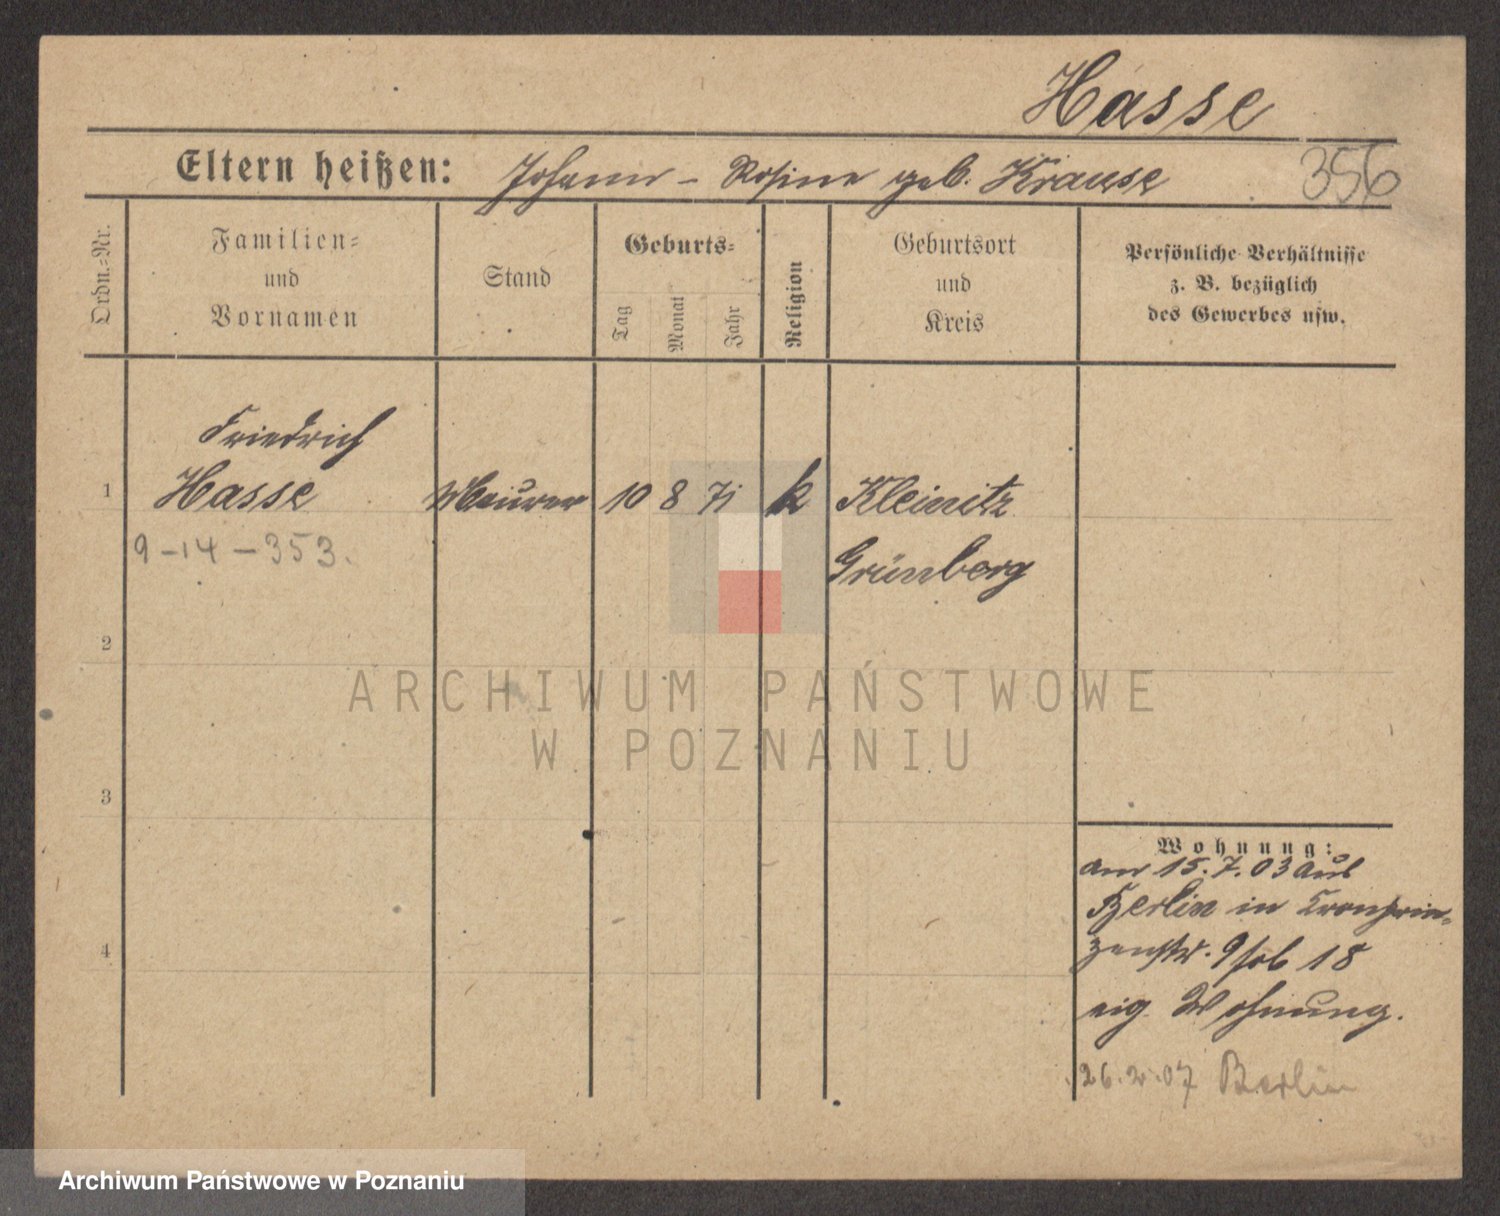 Hasse
Eltern heißen: Johann - Rosine geb. Krause
356
Ordn.-Nr.
Familien-
und
Vornamen
Stand
Geburts-
Tag
Monat
Jahr
Religion
Geburtsort
und
Kreis
Persönliche Verhältnisse
z. B. bezüglich
des Gewerbes usw.
Friedrich
1 Hasse Maurer 10 8 71 k Kleinitz
9-14-353.
Grünberg
2
ARCHIWUM PAŃSTWOWE
W POZNANIU
3
Wohnung:
am 15.7.03 aus
Berlin in Kronprin-
zenstr. 9 18
eig. Wohnung.
4
26.2.07 Berlin
Archiwum Państwowe w Poznaniu